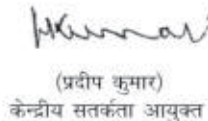 (प्रदीप कुमार)
केन्द्रीय सतर्कता आयुक्त